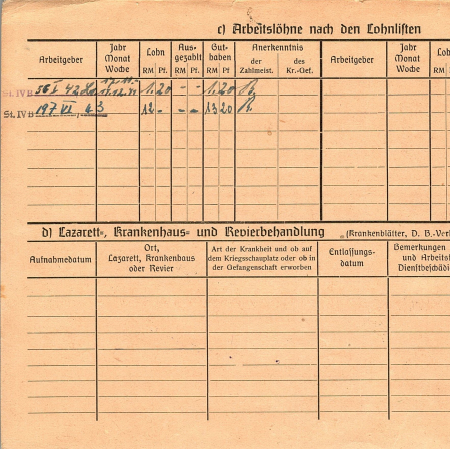 c) Arbeitslöhne nach den Lohnlisten
Arbeitgeber Jahr Monat Woche Lohn RM Pf. Ausgezahlt RM Pf. Guthaben RM Pf Anerkenntnis der Zahlmeist. des Kr.-Gef. Arbeitgeber Jahr Monat Woche
St. IV B 56 I 42 1.20 - - 1.20
St. IV B 197 VI 43 12 - - - 13 20
d) Lazarett-, Krankenhaus- und Revierbehandlung (Krankenblätter, D. B.-
Aufnahmedatum Ort, Lazarett, Krankenhaus oder Revier Art der Krankheit und ob auf dem Kriegsschauplatz oder ob in der Gefangenschaft erworben Entlassungs-datum Bemerkungen und